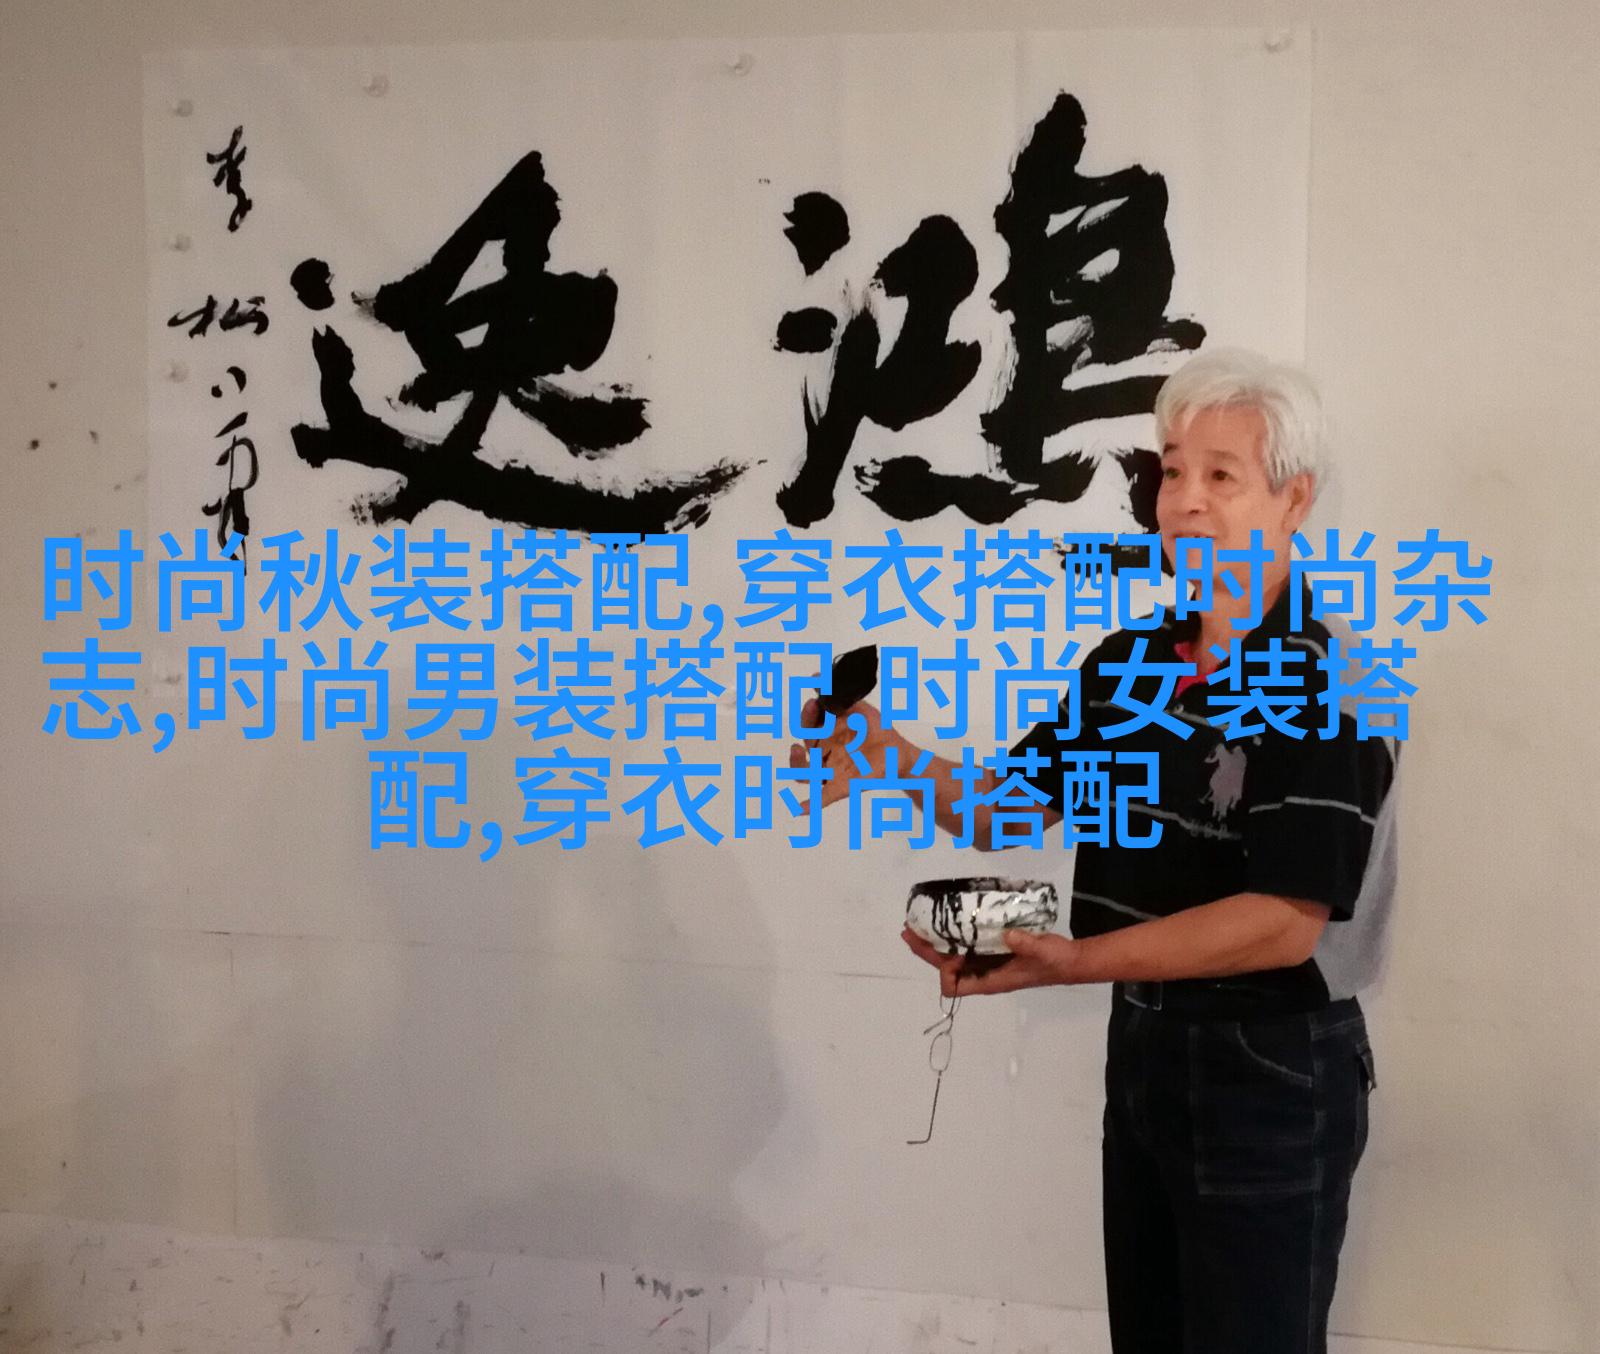 鸿逸
李松
时尚秋装搭配,穿衣搭配时尚杂
志,时尚男装搭配,时尚女装搭
配,穿衣时尚搭配